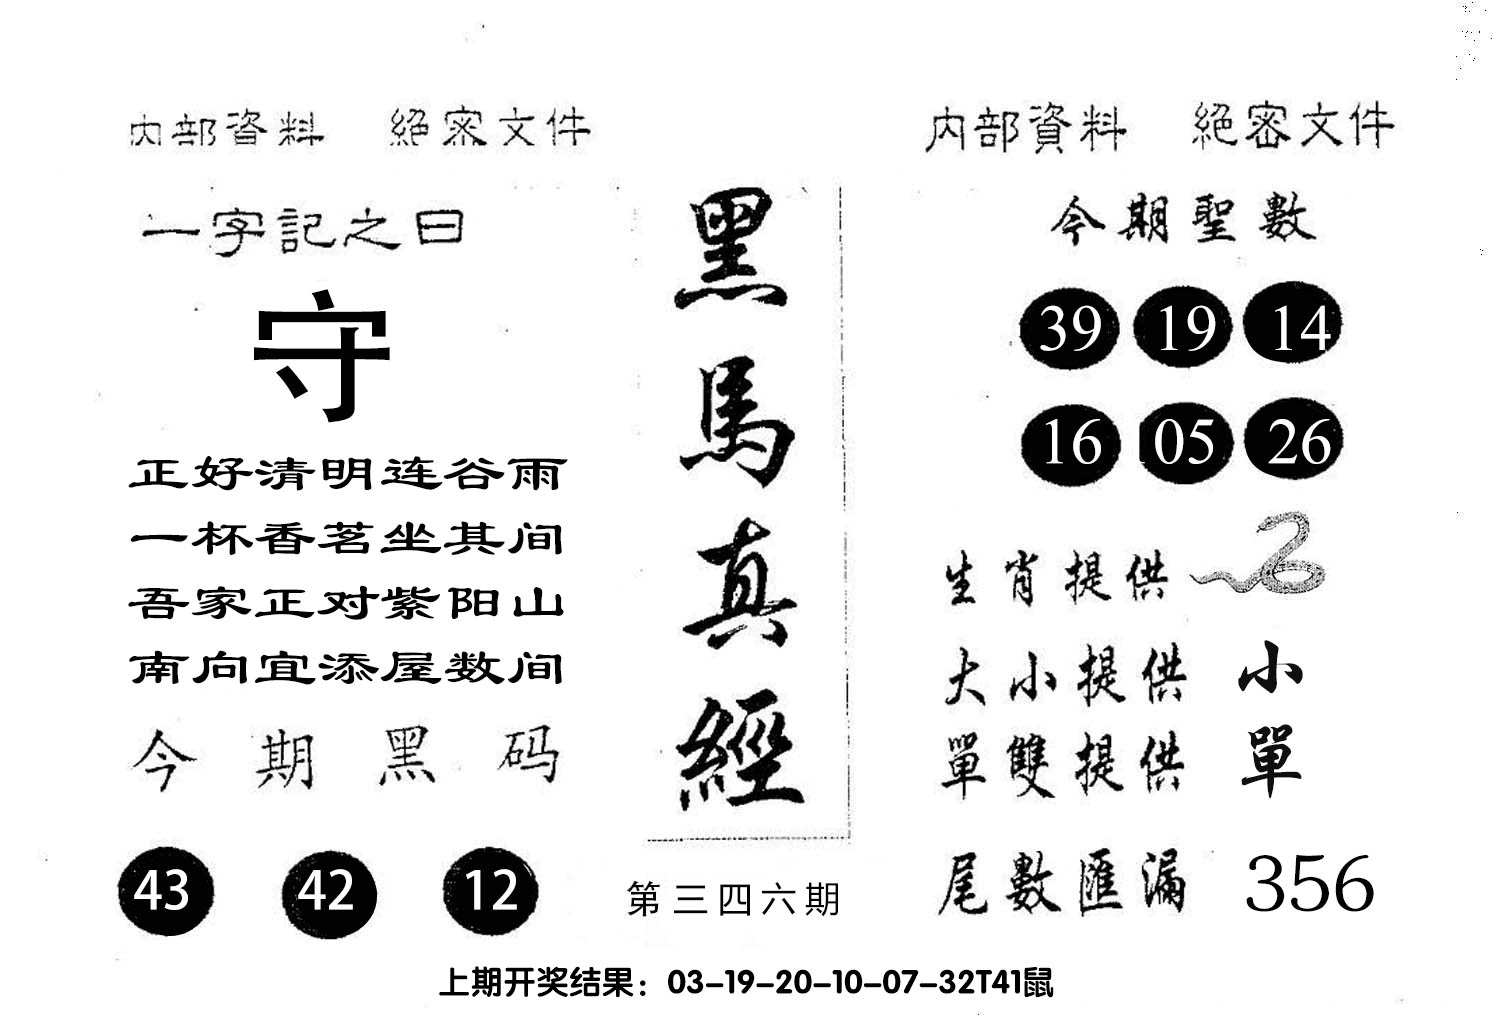 内部資料 絕密文件
一字記之曰
守
正好清明连谷雨
一杯香茗坐其间
吾家正对紫阳山
南向宜添屋数间
今期黑码
43 42 12
黑馬真經
第三四六期
内部資料 絕密文件
今期聖數
39 19 14
16 05 26
生肖提供
大小提供 小
單雙提供 單
尾數匯漏 356
上期开奖结果：03-19-20-10-07-32T41鼠